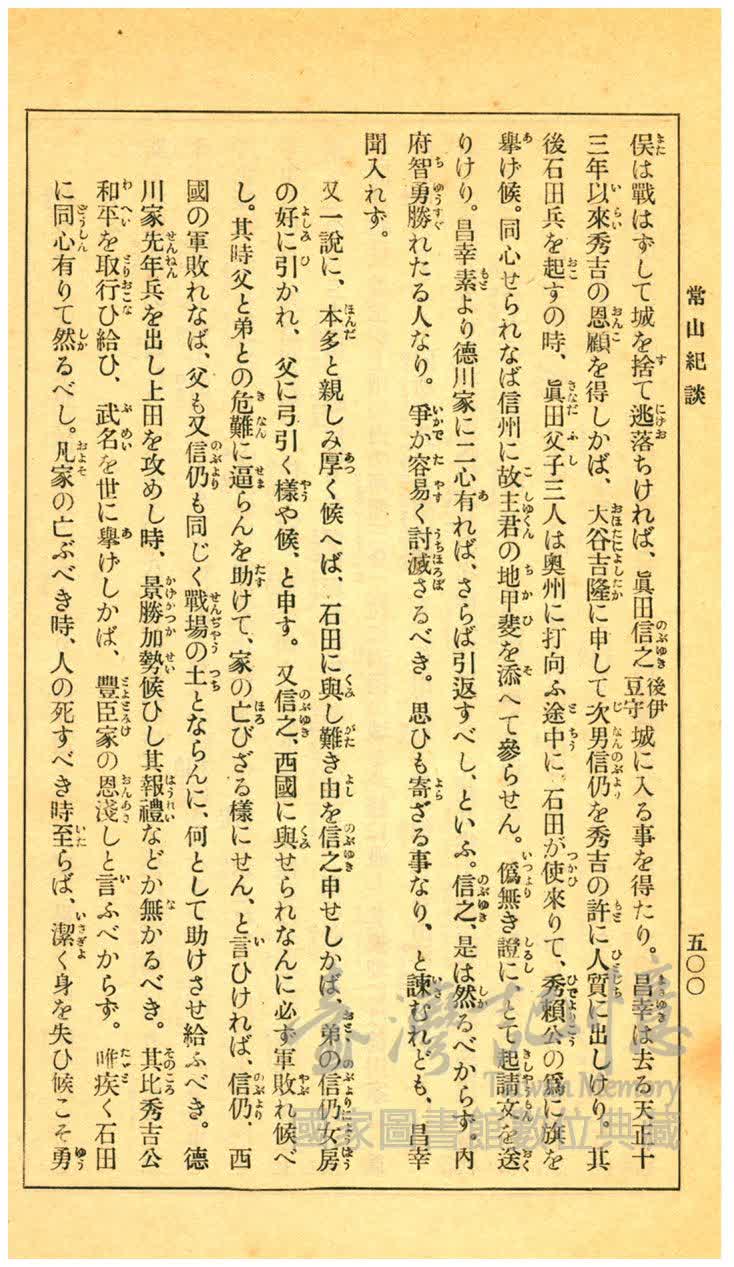 常山紀談
五〇〇
俣は戰はずして城を捨て逃落ちければ、眞田信之後伊豆守城に入る事を得たり。昌幸は去る天正十
三年以來秀吉の恩顧を得しかば、大谷吉隆に申して次男信仍を秀吉の許に人質に出しけり。其
後石田兵を起すの時、眞田父子三人は奧州に打向ふ途中に、石田が使來りて、秀賴公の爲に旗を
擧げ候。同心せられなば信州に故主君の地甲斐を添へて參らせん。僞無き證に、とて起請文を送
りけり。昌幸素より德川家に二心有れば、さらば引返すべし、といふ。信之、是は然るべからず。內
府智勇勝れたる人なり。爭か容易く討滅さるべき。思ひも寄ざる事なり、と諫むれども、昌幸
聞入れず。
又一說に、本多と親しみ厚く候へば、石田に與し難き由を信之申せしかば、弟の信仍女房
の好に引かれ、父に弓引く樣や候、と申す。又信之、西國に與せられなんに必ず軍敗れ候べ
し。其時父と弟との危難に逼らんを助けて、家の亡びざる樣にせん、と言ひければ、信仍、西
國の軍敗れなば、父も又信仍も同じく戰場の土とならんに、何として助けさせ給ふべき。德
川家先年兵を出し上田を攻めし時、景勝加勢候ひし其報禮などか無かるべき。其比秀吉公
和平を取行ひ給ひ、武名を世に擧げしかば、豐臣家の恩淺しと言ふべからず。唯疾く石田
に同心有りて然るべし。凡家の亡ぶべき時、人の死すべき時至らば、潔く身を失ひ候こそ勇
臺灣記憶
Taiwan Memory
國家圖書館數位典藏